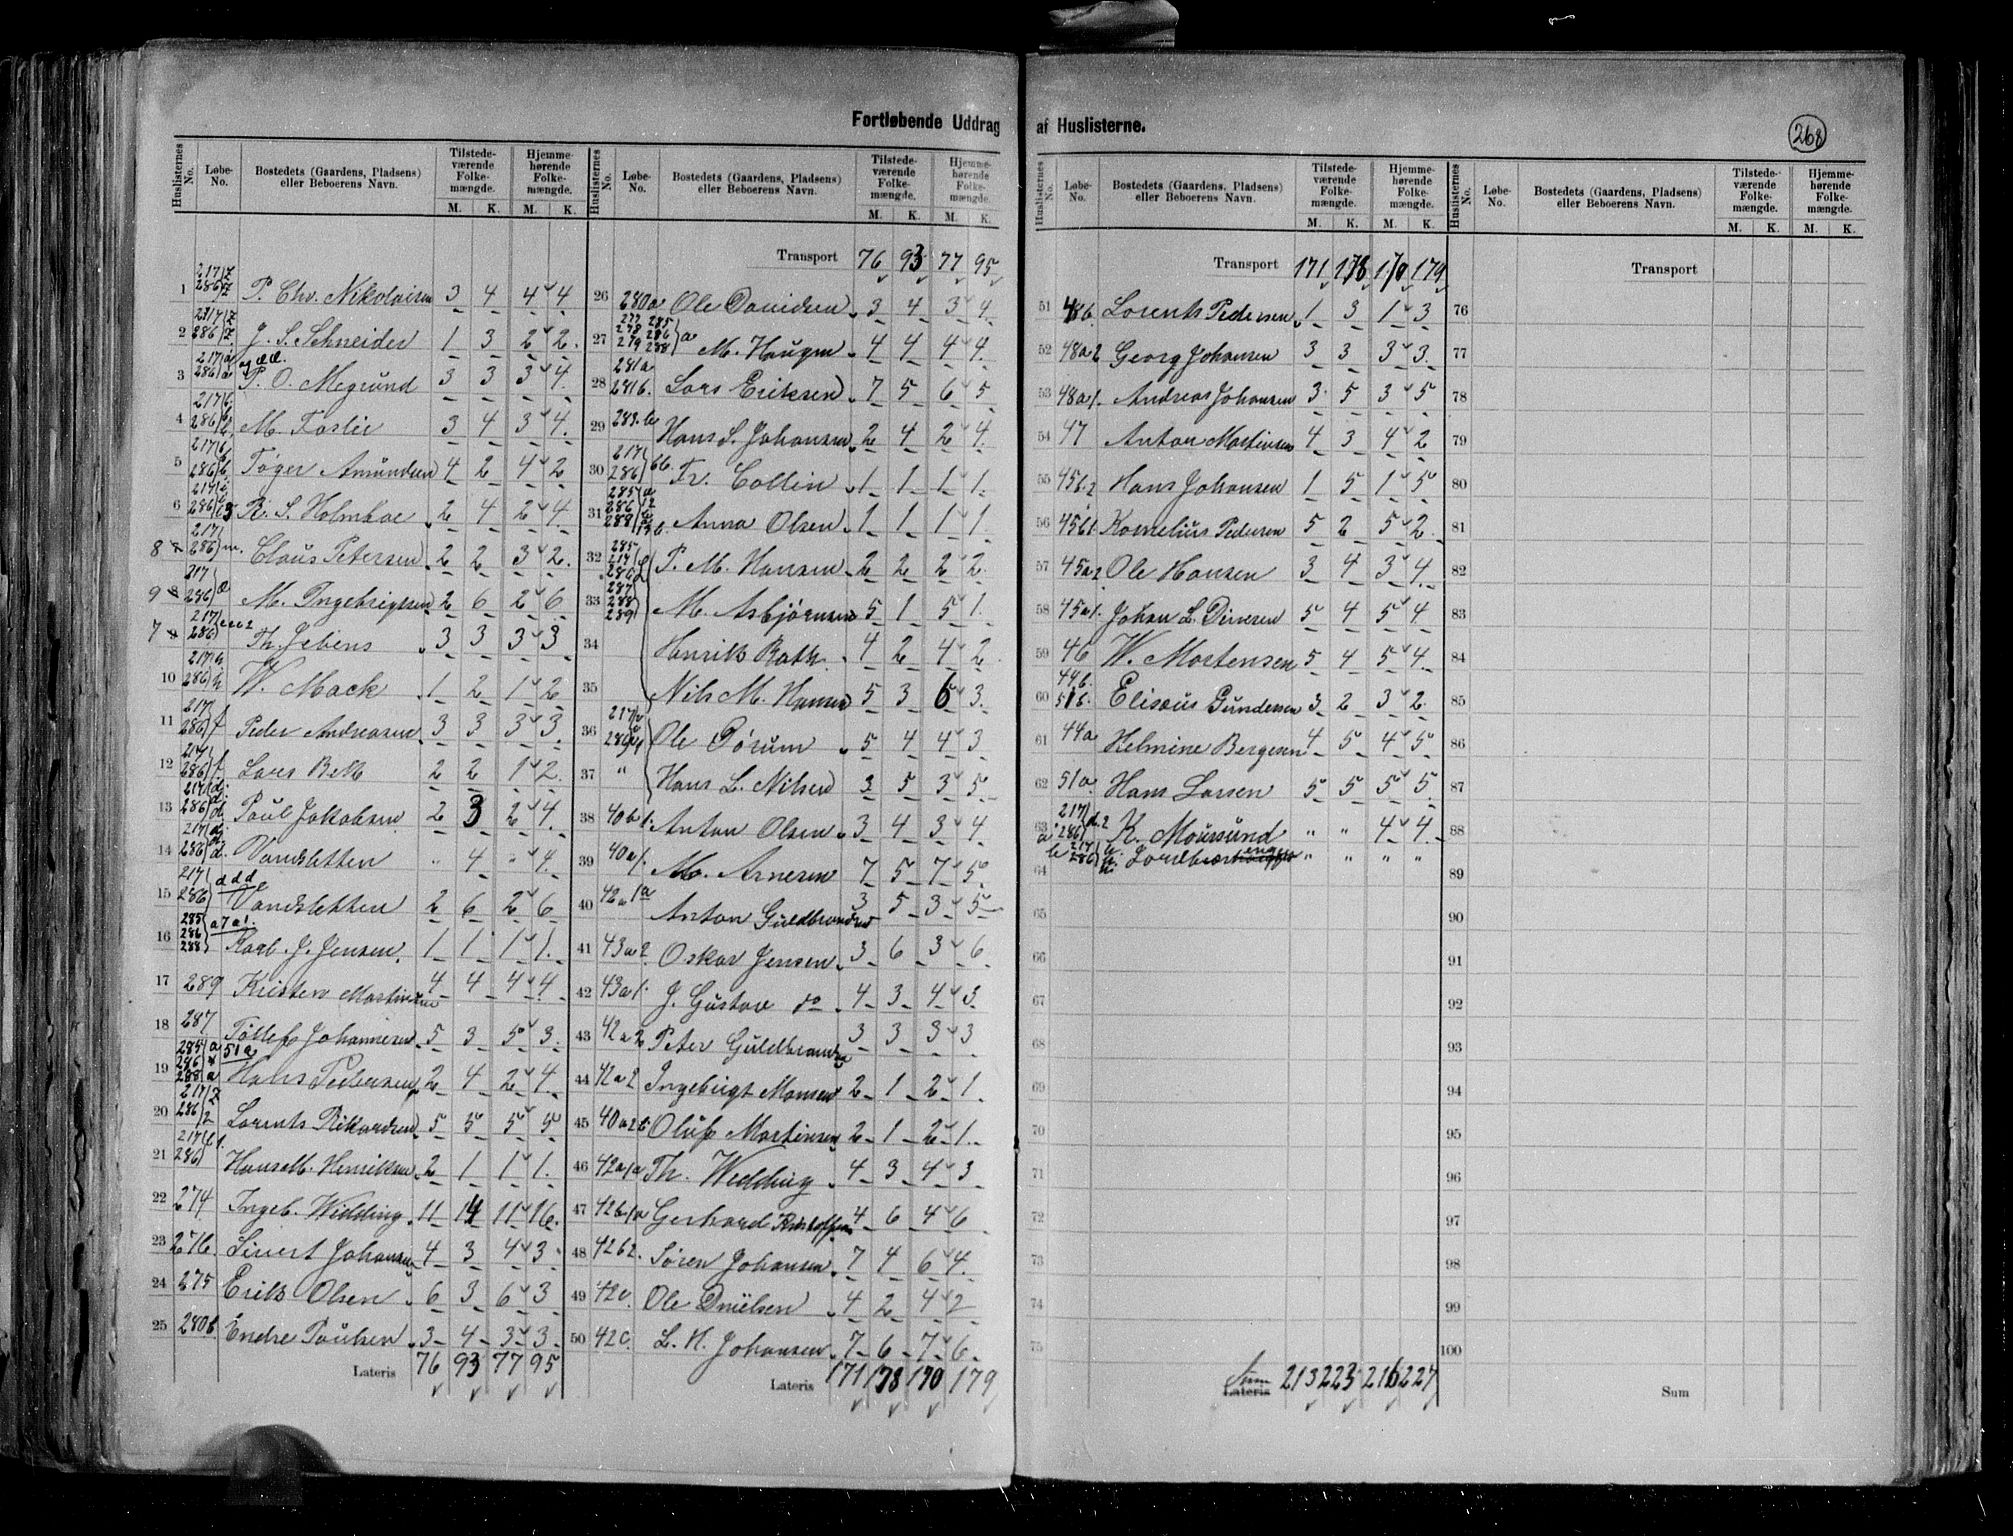 Fortløbende Uddrag af Huslisterne.
268
Huslisternes No. Løbe-No. Bostedets (Gaardens, Pladsens) eller Beboerens Navn. Tilstedeværende Folkemængde. M. K. Hjemmehørende Folkemængde. M. K.
1 217/z 286/z P. Chr. Nikolaisen 3 4 4 4
2 217/z 286/z J. S. Schneider 1 3 2 2
3 217/a 286/a og ææ. P. O. Megrund 3 3 3 4
4 217/b. 286/b. M. Foslie 3 4 3 4
5 217/b 286/b. Tøger Amundsen 4 2 4 2
6 217/i 286/i3 R. S. Holmboe 2 4 2 4
8 217 286/m. Claus Petersen 2 2 3 2
9 217 286/a M. Ingebrigtsen 2 6 2 6
7 217 286 Th. Jebens 3 3 3 3
10 217/h 286/h W. Mack 1 2 1 2
11 217 286/f Peder Andreasen 3 3 3 3
12 217 286/f. Lars Bek 2 2 1 2
13 217/d. 286/d. Poul Jakobsen 2 3 2 4
14 217/d. 286/d. Vandsletten " 4 " 4
15 217 286 ddd Vandsletten 2 6 2 6
16 285 286 288 a7 a1. Karl. J. Jensen 1 1 1 1
17 289 Kristen Martinsen 4 4 4 4
18 287 Tollef Johannesen 5 3 5 3
19 285/a 51a 288/a Hans Pedersen 2 4 2 4
20 217/z 286/2 Lorents Rikardsen 5 5 5 5
21 217/ 286 Hans M. Henriksen 2 1 1 1
22 274 Ingeb. Widding 11 14 11 16
23 276. Sivert Johansen 4 3 4 3
24 275 Erik Olsen 6 3 6 3
25 280b Endre Poulsen 3 4 3 3
Lateris 76 93 77 95
Huslisternes No. Løbe-No. Bostedets (Gaardens, Pladsens) eller Beboerens Navn. Tilstedeværende Folkemængde. M. K. Hjemmehørende Folkemængde. M. K.
Transport 76 93 77 95
26 280a Ole Davidsen 3 4 3 4
27 277 285 278 286 279 288 a M. Haugen 4 4 4 4
28 281a 281b. Lars Eriksen 7 5 6 5
29 283. Hans S. Johansen 2 4 2 4
30 217 286 bb. Fr. Collin 1 1 1 1
31 285/a 286 288 Anna Olsen 1 1 1 1
32 285 217 286 P. M. Hansen 2 2 2 2
33 287 288 289 M. Asbjørnsen 5 1 5 1
34 Henrik Rath. 4 2 4 2
35 Nils M. Hansen 5 3 6 3
36 217 286 Ole Sørum 5 4 4 3
37 " Hans L. Nilsen 3 5 3 5
38 40b1. Anton Olsen 3 4 3 4
39 40a1. M. Arnesen 7 5 7 5
40 42a1a Anton Guldbrandsen 3 5 3 5
41 43a2 Oskar Jensen 3 6 3 6
42 43a1. J. Gustav do 4 3 4 3
43 42a2 Peter Guldbrands 3 3 3 3
44 42a2 Ingebrigt Monsen 2 1 2 1
45 40a2 Oluf Martinsen 2 1 2 1
46 42a1a Th. Widding 4 3 4 3
47 42b1a Gerhard Kristoffersen 4 6 4 6
48 42b2. Søren Johansen 7 4 6 4
49 42c. Ole Danielsen 4 2 4 2
50 42c. L. H. Johansen 7 6 7 6
Lateris 171 178 170 179
Huslisternes No. Løbe-No. Bostedets (Gaardens, Pladsens) eller Beboerens Navn. Tilstedeværende Folkemængde. M. K. Hjemmehørende Folkemængde. M. K.
Transport 171 178 170 179
51 48b. Lorents Pedersen 1 3 1 3
52 48a2 Georg Johansen 3 3 3 3
53 48a1. Andreas Johansen 3 5 3 5
54 47 Anton Martinsen 4 3 4 2
55 45b2 Hans Johansen 1 5 1 5
56 45b1. Kornelius Pedersen 5 2 5 2
57 45a2 Ole Hansen 3 4 3 4
58 45a1. Johan L. Dinesen 5 4 5 4
59 46 W. Mortensen 5 4 5 4
60 44b. 51b. Elisæus Gundersen 3 2 3 2
61 44a Helmine Bergesen 4 5 4 5
62 51a Hans Larsen 5 5 5 5
63 a 217 286 d.2 K. Moursund " " 4 4
64 b 217 286 " " " "
65
66
67
68
69
70
71
72
73
74
75
Sum Lateris 213 223 216 227
Huslisternes No. Løbe-No. Bostedets (Gaardens, Pladsens) eller Beboerens Navn. Tilstedeværende Folkemængde. M. K. Hjemmehørende Folkemængde. M. K.
Transport
76
77
78
79
80
81
82
83
84
85
86
87
88
89
90
91
92
93
94
95
96
97
98
99
100
Sum